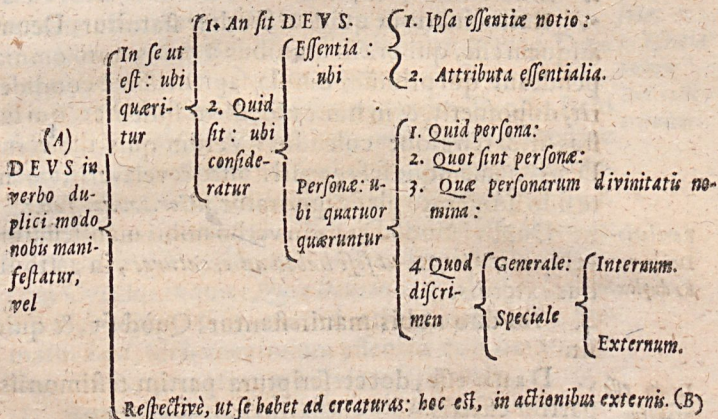 (A)
DEVS in
verbo du-
plici modo
nobis mani-
festatur,
vel
In se ut
est: ubi
quæri-
tur
1. An sit DEVS.
2. Quid
sit: ubi
conside-
ratur
Essentia:
ubi
1. Ipsa essentiæ notio:
2. Attributa essentialia.
Personæ: u-
bi quatuor
quæruntur
1. Quid persona:
2. Quot sint personæ:
3. Quæ personarum divinitatis no-
mina:
4 Quod
discri-
men
Generale:
Speciale
Internum.
Externum.
Respectivè, ut se habet ad creaturas: hoc est, in actionibus externis. (B)